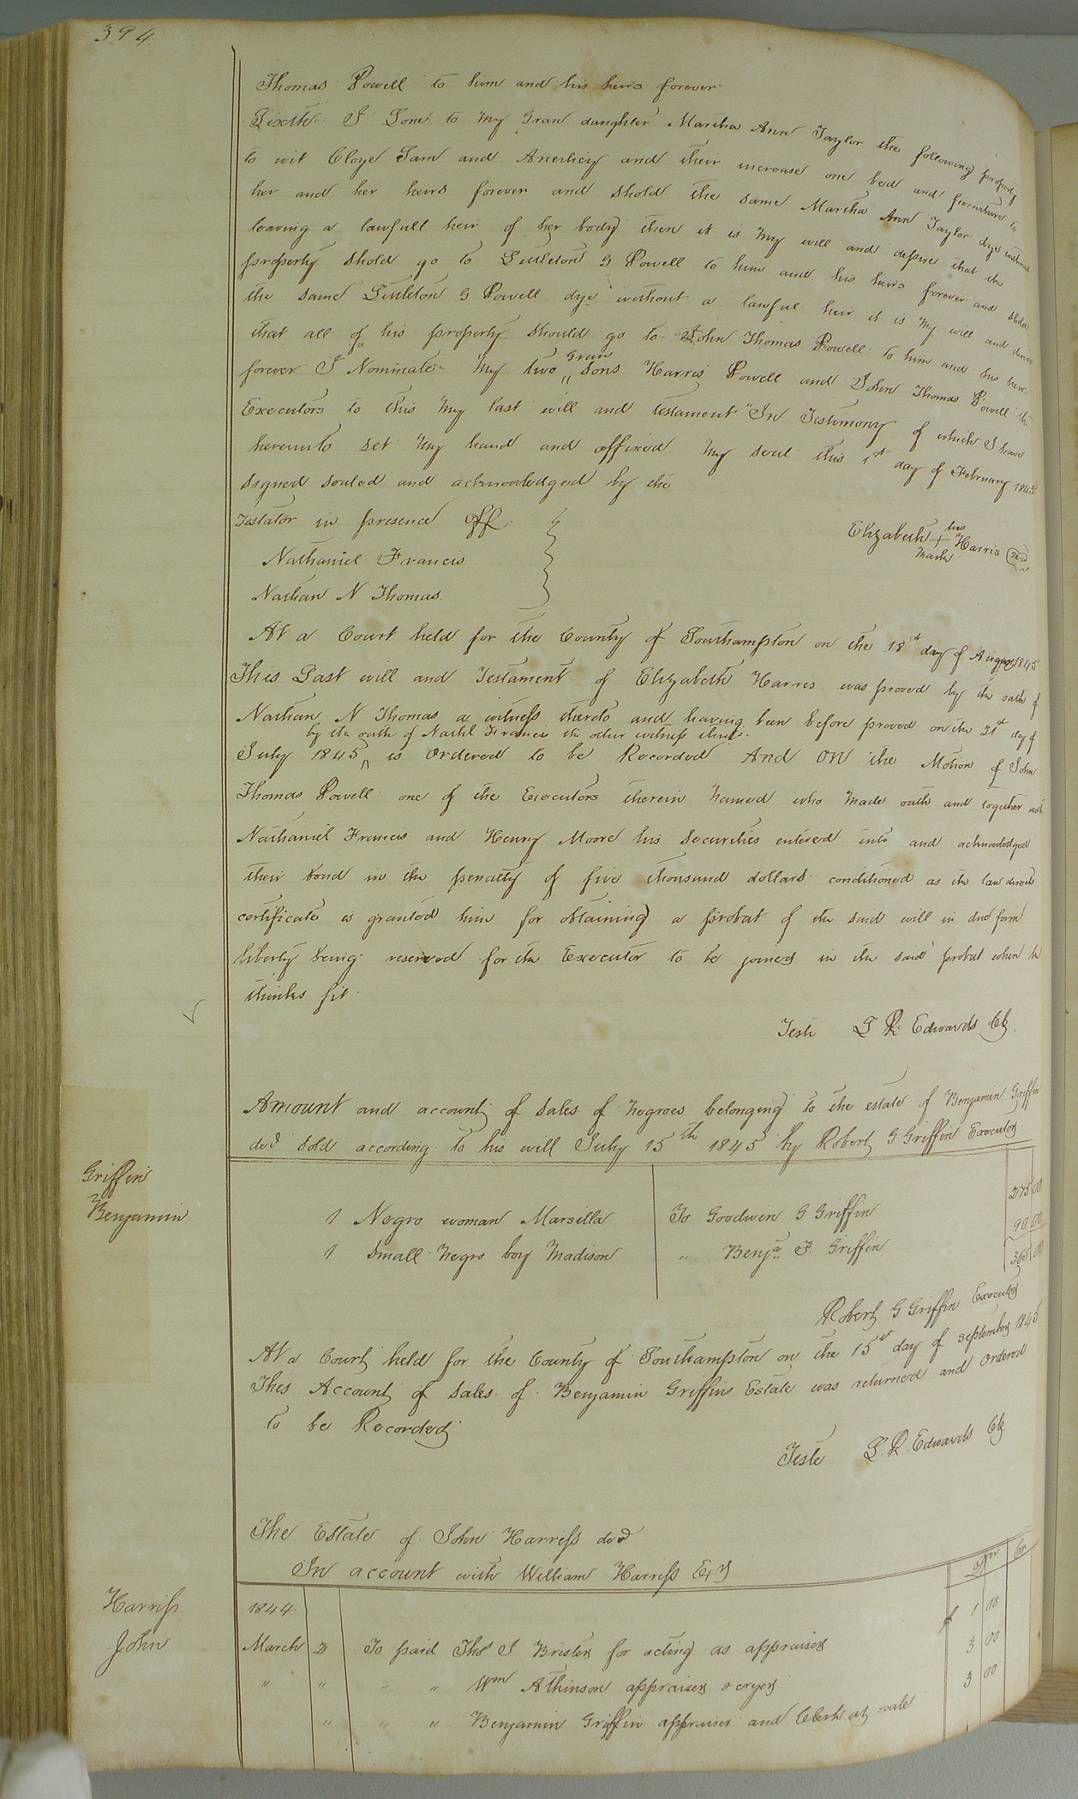 394
Thomas Powell to him and his heirs forever
Sixth I Lone to my Gran daughter Martha Ann Taylor the following property
to wit Cloye Sam and and their increase one bed and furniture to
her and her heirs forever and shold the same Martha Ann Taylor dye without
leaving a lawfull heir of her body then it is my will and desire that the
property shold go to Littleton G Powell to him and his heirs forever and shold
the same Littleton G Powell dye without a lawful heir it is my will and desire
that all of his property should go to John Thomas Powell to him and his heirs
forever I Nominate my two Gran sons Harris Powell and John Thomas Powell
Executors to this my last will and testament "In Testimony of which I have
hereunto set my hand and affixed my seal this 1st day of February 1845
Signed sealed and acknowledged by the
Testator in presence off
Elizabeth + Harris
his
mark
Nathaniel Francis
Nathan N Thomas
At a Court held for the County of Southampton on the 18th day of August 1845
This Last will and Testament of Elizabeth Harris was proved by the oath of
Nathan N Thomas a witness thereto and having been before proved on the 21st day of
by the oath of Nathl Francis the other witness thereto
July 1845 is Ordered to be Recorded And on the Motion of John
Thomas Powell one of the Executors therein named who made oath and together with
Nathaniel Francis and Henry Moore his securities entered into and acknowledged
their bond in the penalty of five thousand dollars conditioned as the law directs
certificate is granted him for obtaining a probat of the said will in due form
liberty being reserved for the Executor to be joined in the said probat when he
thinks fit
Teste L R Edwards Clk
Amount and account of sales of negroes belonging to the estate of Benjamin Griffin
decd sold according to his will July 15th 1845 by Robert G Griffin Executor
Griffin
Benjamin
1 Negro woman Marsilla To Goodwin G Griffin 275 00
1 Small negro boy Madison " Benja F Griffin 90 00
365 00
Robert G Griffin Executor
At a Court held for the County of Southampton on the 15th day of September 1845
This Account of sales of Benjamin Griffins Estate was returned and Ordered
to be Recorded
Teste L R Edwards Clk
The Estate of John Harriss decd
In account with William Harriss Exr
Dr Cr
Harriss
John
1844
March 2 To paid Thos J Brister for acting as appraiser $ 1 00
" " " " Wm Atkinson appraiser & cryer 3 00
" " " Benjamin Griffin appraiser and Clerk at sale 3 00